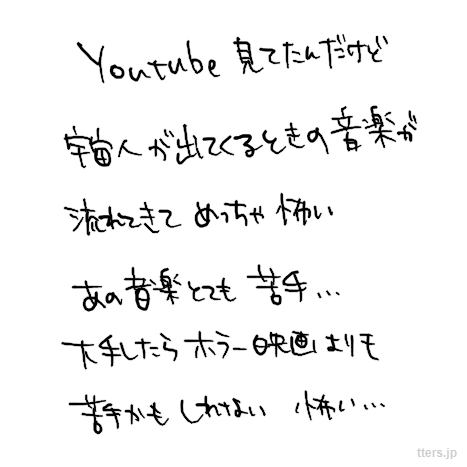 Youtube 見てたんだけど
宇宙人が出てくるときの音楽が
流れてきて めっちゃ怖い
あの音楽とても 苦手...
下手したらホラー映画よりも
苦手かもしれない 怖い...
tters.jp